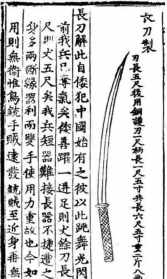 長刀製
刀長五尺後用銅護刃一尺柄長一尺五寸共長六尺五寸重二斤八
長刀解此自倭犯中國始有之彼以此跳舞光閃
前我兵已奪氣矣倭善躍一迸足則丈餘刀長
尺則丈五尺矣我兵短器難接長器不捷遭之
身多兩斷緣器利而雙手使用力重故也今如
用則無衛惟鳥銃手賊遠發銃賊至近身再無